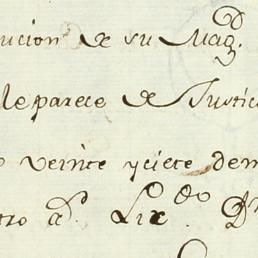 ucion de su Mag.d
le parece de Justic
veinte y ciete de m
tro a.s Lix.do D.n